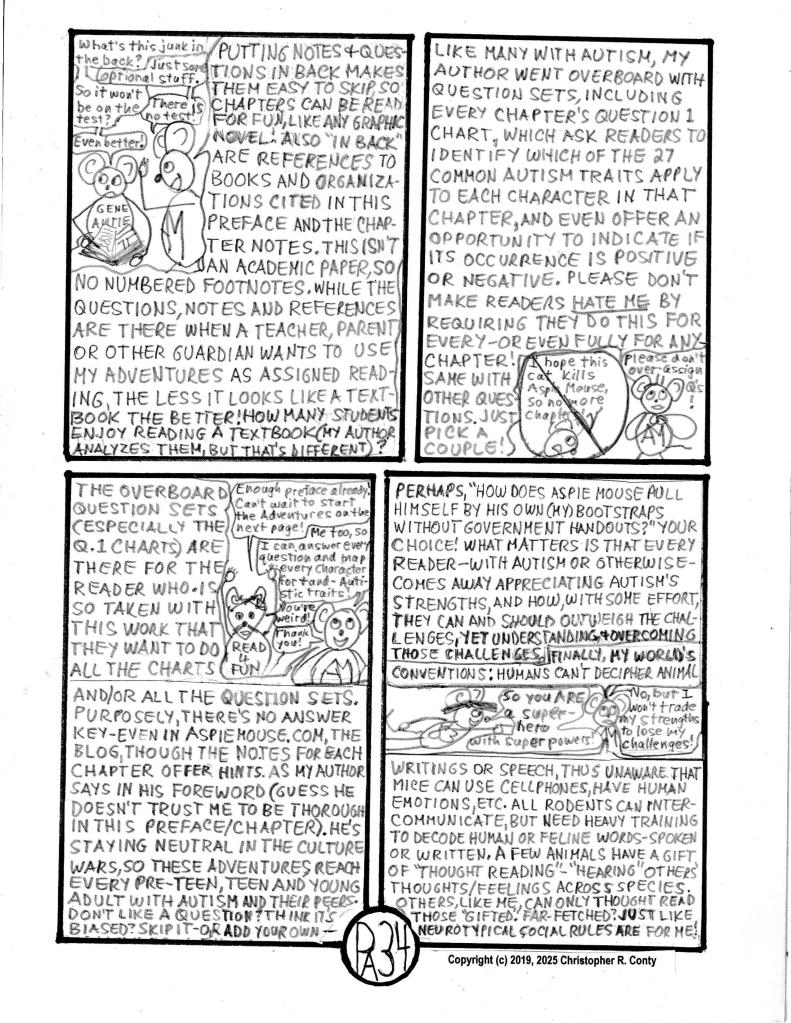 What's this junk in
the back?
Just some
optional stuff.
So it won't
be on the
test?
There is
no test!
Even better!
GENE
AUNTIE
M
PUTTING NOTES & QUES-
TIONS IN BACK MAKES
THEM EASY TO SKIP, SO
CHAPTERS CAN BE READ
FOR FUN, LIKE ANY GRAPHIC
NOVEL! ALSO "IN BACK"
ARE REFERENCES TO
BOOKS AND ORGANIZA-
TIONS CITED IN THIS
PREFACE AND THE CHAP-
TER NOTES. THIS ISN'T
AN ACADEMIC PAPER, SO
NO NUMBERED FOOTNOTES. WHILE THE
QUESTIONS, NOTES AND REFERENCES
ARE THERE WHEN A TEACHER, PARENT
OR OTHER GUARDIAN WANTS TO USE
MY ADVENTURES AS ASSIGNED READ-
ING, THE LESS IT LOOKS LIKE A TEXT-
BOOK THE BETTER! HOW MANY STUDENTS
ENJOY READING A TEXTBOOK (MY AUTHOR
ANALYZES THEM, BUT THAT'S DIFFERENT)?
LIKE MANY WITH AUTISM, MY
AUTHOR WENT OVERBOARD WITH
QUESTION SETS, INCLUDING
EVERY CHAPTER'S QUESTION 1
CHART, WHICH ASK READERS TO
IDENTIFY WHICH OF THE 27
COMMON AUTISM TRAITS APPLY
TO EACH CHARACTER IN THAT
CHAPTER, AND EVEN OFFER AN
OPPORTUNITY TO INDICATE IF
ITS OCCURRENCE IS POSITIVE
OR NEGATIVE. PLEASE DON'T
MAKE READERS HATE ME BY
REQUIRING THEY DO THIS FOR
EVERY-OR EVEN FULLY FOR ANY-
CHAPTER!
SAME WITH
OTHER QUES-
TIONS. JUST
PICK A
COUPLE!
I hope this
cat kills
Aspie Mouse,
so no more
chapters!
Please don't
over-assign
Q's!
AM
THE OVERBOARD
QUESTION SETS
(ESPECIALLY THE
Q.1 CHARTS) ARE
THERE FOR THE
READER WHO IS
SO TAKEN WITH
THIS WORK THAT
THEY WANT TO DO
ALL THE CHARTS
Enough preface already!
Can't wait to start
the Adventures on the
next page!
Me too, so
I can answer every
question and map
every character
for t and - Auti-
stic traits!
You're
weird!
Thank
you!
READ
4
FUN
AM
AND/OR ALL THE QUESTION SETS.
PURPOSELY, THERE'S NO ANSWER
KEY-EVEN IN ASPIEMOUSE.COM, THE
BLOG, THOUGH THE NOTES FOR EACH
CHAPTER OFFER HINTS. AS MY AUTHOR
SAYS IN HIS FOREWORD (GUESS HE
DOESN'T TRUST ME TO BE THOROUGH
IN THIS PREFACE/CHAPTER). HE'S
STAYING NEUTRAL IN THE CULTURE
WARS, SO THESE ADVENTURES REACH
EVERY PRE-TEEN, TEEN AND YOUNG
ADULT WITH AUTISM AND THEIR PEERS.
DON'T LIKE A QUESTION? THINK IT'S
BIASED? SKIP IT-OR ADD YOUR OWN-
PERHAPS, "HOW DOES ASPIE MOUSE PULL
HIMSELF BY HIS OWN (MY) BOOTSTRAPS
WITHOUT GOVERNMENT HANDOUTS?" YOUR
CHOICE! WHAT MATTERS IS THAT EVERY
READER-WITH AUTISM OR OTHERWISE-
COMES AWAY APPRECIATING AUTISM'S
STRENGTHS, AND HOW, WITH SOME EFFORT,
THEY CAN AND SHOULD OUTWEIGH THE CHAL-
LENGES, YET UNDERSTANDING & OVERCOMING
THOSE CHALLENGES. FINALLY, MY WORLD'S
CONVENTIONS: HUMANS CAN'T DECIPHER ANIMAL
So you ARE
a super-
hero
with super powers!
No, but I
won't trade
my strengths
to lose my
challenges!
WRITINGS OR SPEECH, THUS UNAWARE THAT
MICE CAN USE CELLPHONES, HAVE HUMAN
EMOTIONS, ETC. ALL RODENTS CAN INTER-
COMMUNICATE, BUT NEED HEAVY TRAINING
TO DECODE HUMAN OR FELINE WORDS-SPOKEN
OR WRITTEN. A FEW ANIMALS HAVE A GIFT
OF "THOUGHT READING"-"HEARING" OTHERS'
THOUGHTS/FEELINGS ACROSS SPECIES.
OTHERS, LIKE ME, CAN ONLY THOUGHT READ
THOSE "GIFTED." FAR-FETCHED? JUST LIKE
NEUROTYPICAL SOCIAL RULES ARE FOR ME!
PA34
Copyright (c) 2019, 2025 Christopher R. Conty